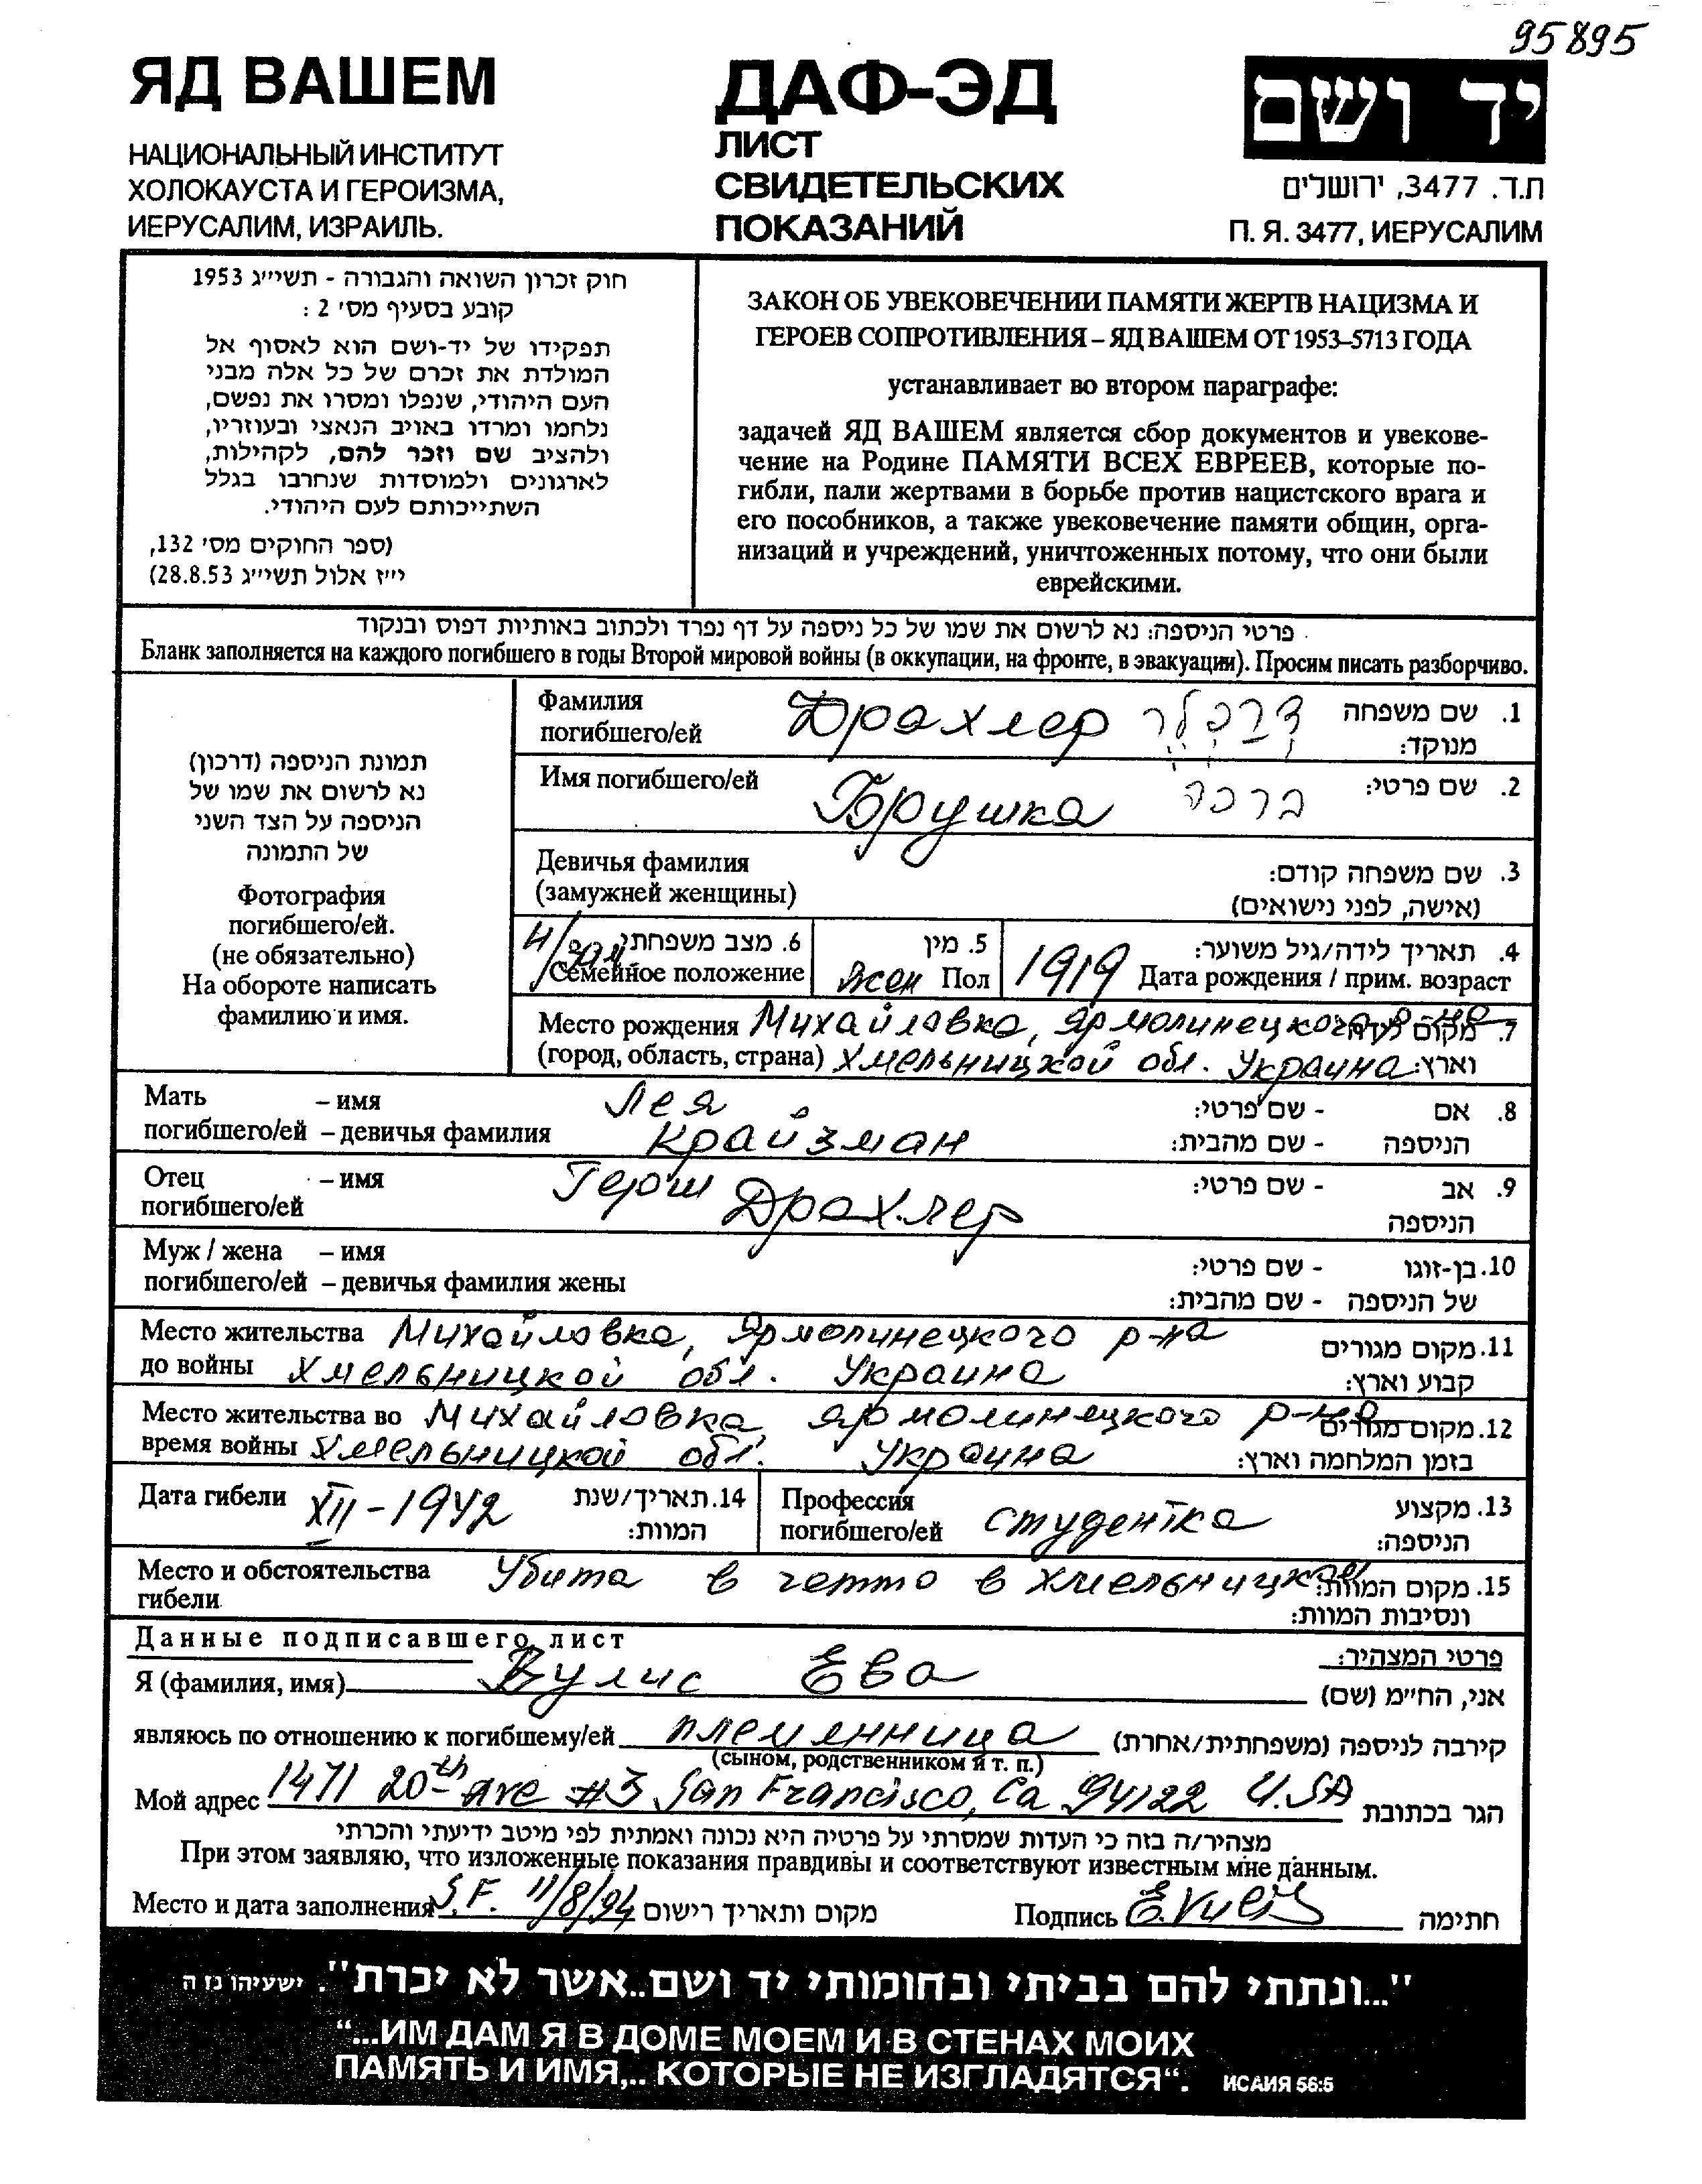 95895
ЯД ВАШЕМ
НАЦИОНАЛЬНЫЙ ИНСТИТУТ
ХОЛОКАУСТА И ГЕРОИЗМА,
ИЕРУСАЛИМ, ИЗРАИЛЬ.
ДАФ-ЭД
ЛИСТ
СВИДЕТЕЛЬСКИХ
ПОКАЗАНИЙ
יד ושם
ת.ד. 3477, ירושלים
П. Я. 3477, ИЕРУСАЛИМ
חוק זכרון השואה והגבורה - תשי״ג 1953
קובע בסעיף מס׳ 2 :
תפקידו של יד-ושם הוא לאסוף אל
המולדת את זכרם של כל אלה מבני
העם היהודי, שנפלו ומסרו את נפשם,
נלחמו ומרדו באויב הנאצי ובעוזריו,
ולהציב שם וזכר להם, לקהילות,
לארגונים ולמוסדות שנחרבו בגלל
השתייכותם לעם היהודי.
(ספר החוקים מס׳ 132,
י״ז אלול תשי״ג 28.8.53)
ЗАКОН ОБ УВЕКОВЕЧЕНИИ ПАМЯТИ ЖЕРТВ НАЦИЗМА И
ГЕРОЕВ СОПРОТИВЛЕНИЯ – ЯД ВАШЕМ ОТ 1953–5713 ГОДА
устанавливает во втором параграфе:
задачей ЯД ВАШЕМ является сбор документов и увекове-
чение на Родине ПАМЯТИ ВСЕХ ЕВРЕЕВ, которые по-
гибли, пали жертвами в борьбе против нацистского врага и
его пособников, а также увековечение памяти общин, орга-
низаций и учреждений, уничтоженных потому, что они были
еврейскими.
פרטי הניספה: נא לרשום את שמו של כל ניספה על דף נפרד ולכתוב באותיות דפוס ובנקוד
Бланк заполняется на каждого погибшего в годы Второй мировой войны (в оккупации, на фронте, в эвакуации). Просим писать разборчиво.
תמונת הניספה (דרכון)
נא לרשום את שמו של
הניספה על הצד השני
של התמונה
Фотография
погибшего/ей.
(не обязательно)
На обороте написать
фамилию и имя.
Фамилия Драхлер דרכלר 1. שם משפחה
погибшего/ей מנוקד:
Имя погибшего/ей Брушка ברכה 2. שם פרטי:
Девичья фамилия 3. שם משפחה קודם:
(замужней женщины) (אישה, לפני נישואים)
Н/зам 6. מצב משפחתי 5. מין 4. תאריך לידה/גיל משוער:
Семейное положение жен Пол 1919 Дата рождения / прим. возраст
Место рождения Михайловка, Ярмолинецкого р-на 7. מקום לידה
(город, область, страна) Хмельницкой обл. Украина וארץ:
Мать – имя Лея 8. אם - שם פרטי:
погибшего/ей – девичья фамилия Крайзман הניספה - שם מהבית:
Отец – имя Герш Драхлер 9. אב - שם פרטי:
погибшего/ей הניספה
Муж / жена – имя 10. בן-זוגו - שם פרטי:
погибшего/ей – девичья фамилия жены של הניספה - שם מהבית:
Место жительства Михайловка, Ярмолинецкого р-на 11. מקום מגורים
до войны Хмельницкой обл. Украина קבוע וארץ:
Место жительства во Михайловка, Ярмолинецкого р-на 12. מקום מגורים
время войны Хмельницкой обл. Украина בזמן המלחמה וארץ:
Дата гибели XII - 1942 14. תאריך/שנת המוות:
Профессия погибшего/ей студентка 13. מקצוע הניספה:
Место и обстоятельства Убита в гетто в Хмельницком 15. מקום המוות
гибели ונסיבות המוות:
Данные подписавшего лист פרטי המצהיר:
Я (фамилия, имя) Вулис Ева אני, הח״מ (שם)
являюсь по отношению к погибшему/ей племянница קירבה לניספה (משפחתית/אחרת)
(сыном, родственником и т. п.)
Мой адрес 1471 20th Ave #3 San Francisco, Ca 94122 U.SA הגר בכתובת
מצהיר/ה בזה כי העדות שמסרתי על פרטיה היא נכונה ואמתית לפי מיטב ידיעתי והכרתי
При этом заявляю, что изложенные показания правдивы и соответствуют известным мне данным.
Место и дата заполнения S.F. 11/8/94 מקום ותאריך רישום Подпись E.Vulis חתימה
"...ונתתי להם בביתי ובחומותי יד ושם...אשר לא יכרת". ישעיהו נז ה
“...ИМ ДАМ Я В ДОМЕ МОЕМ И В СТЕНАХ МОИХ
ПАМЯТЬ И ИМЯ,.. КОТОРЫЕ НЕ ИЗГЛАДЯТСЯ“. ИСАИЯ 56:5